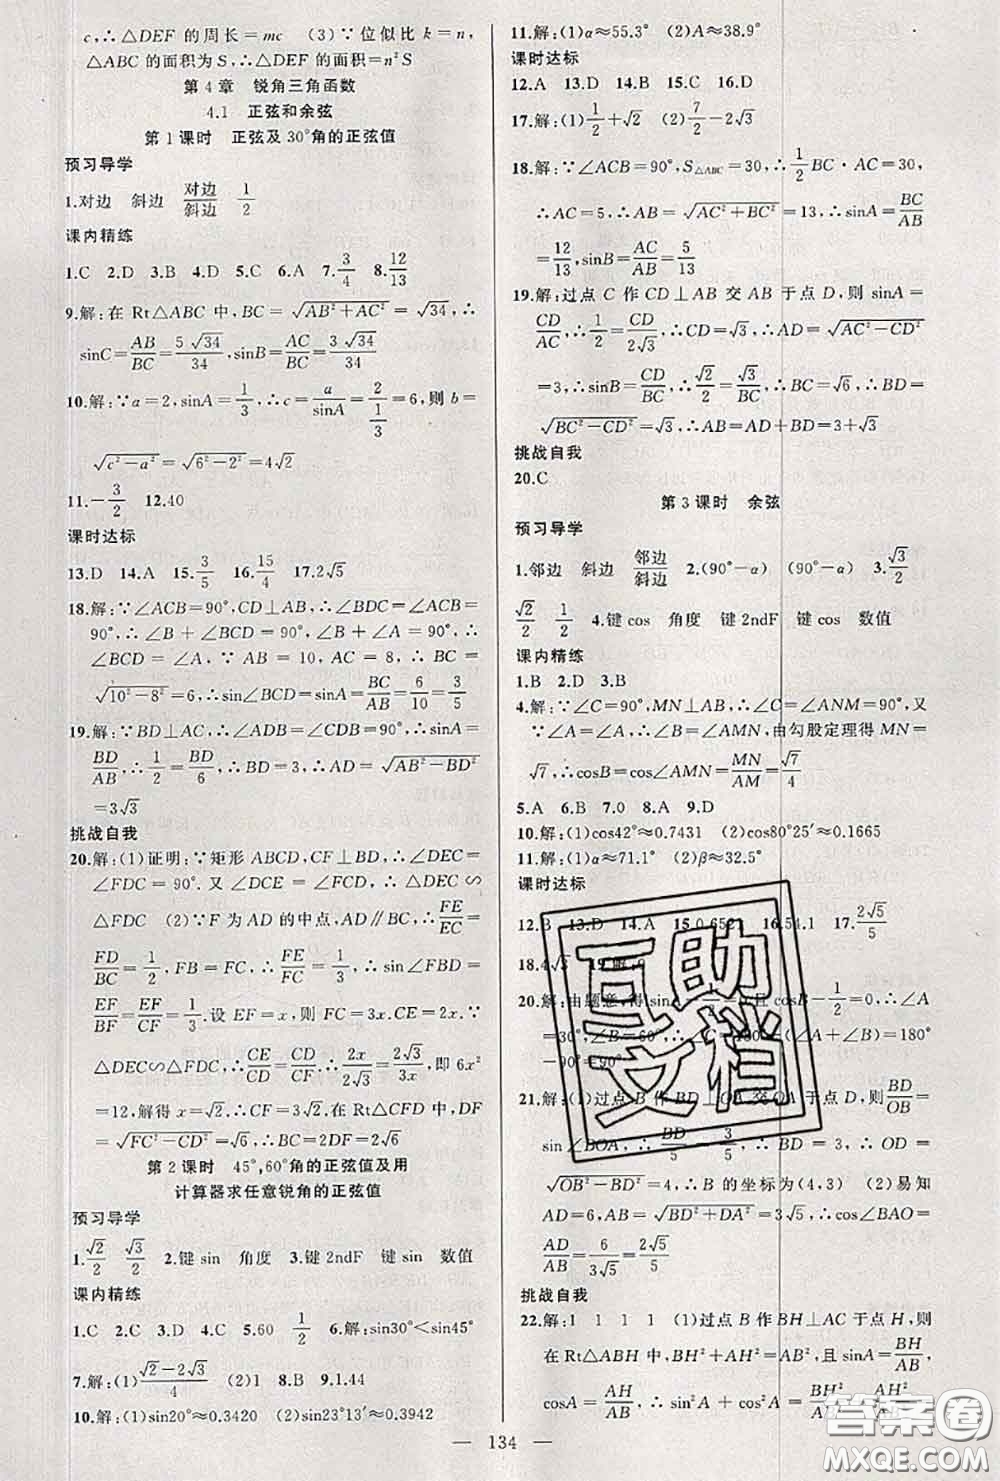 c,∴△DEF 的周长=mc　(3)∵位似比 k=n,
△ABC 的面积为 S,∴△DEF 的面积=n²S
第 4 章　锐角三角函数
4.1　正弦和余弦
第 1 课时　正弦及 30°角的正弦值
预习导学
1.对边　斜边　对边/斜边　1/2
课内精练
1.C　2.D　3.B　4.D　5.C　6.A　7.3/4　8.12/13
9.解:在 Rt△ABC 中,BC=√(AB²+AC²)=√34,∴
sinC=AB/BC=5√34/34,sinB=AC/BC=3√34/34
10.解:∵a=2,sinA=1/3,∴c=a/sinA=2/(1/3)=6,则 b=
√(c²-a²)=√(6²-2²)=4√2
11.-3/2　12.40
课时达标
13.D　14.A　15.3/5　16.15/4　17.2√5
18.解:∵∠ACB=90°,CD⊥AB,∴∠BDC=∠ACB=
90°,∴∠B+∠BCD=90°,∠B+∠A=90°,∴
∠BCD=∠A.∵AB=10,AC=8,∴BC=
√(10²-8²)=6,∴sin∠BCD=BC/AB=6/10=3/5
19.解:∵BD⊥AC,∴∠ADB=∠CDB=90°,∴sinA=
BD/AB,∴1/2=BD/6,∴BD=3,∴AD=√(AB²-BD²)
=3√3
挑战自我
20.解:(1)证明:∵矩形 ABCD,CF⊥BD,∴∠DEC=
∠FDC=90°.又∠DCE=∠FCD,∴△DEC∽
△FDC　(2)∵F 为 AD 的中点,AD∥BC,∴FE/EC=
FD/BC=1/2,FB=FC,∴FE/FC=1/3,∴sin∠FBD=
EF/BF=EF/CF=1/3.设 EF=x,则 FC=3x,CE=2x.∵
△DEC∽△FDC,∴CE/CD=CD/CF,∴2x/2√3=2√3/3x,即 6x²
=12,解得 x=√2,∴CF=3√2,在 Rt△CFD 中,DF
=√(FC²-CD²)=√6,∴BC=2DF=2√6
第 2 课时　45°,60°角的正弦值及用
计算器求任意锐角的正弦值
预习导学
1.√2/2　√3/2　2.键 sin　角度　3.键 2ndF　键 sin　数值
课内精练
1.C　2.C　3.D　4.C　5.60　1/2　6.解:sin30°<sin45°
7.解:(1)(√2-2√3)/4　(2)1　8.B　9.1.44
10.解:(1)sin20°≈0.3420　(2)sin23°13′≈0.3942
11.解:(1)α≈55.3°　(2)A≈38.9°
课时达标
12.A　13.D　14.A　15.C　16.D
17.解:(1)1/2+√2　(2)7/2-√2
18.解:∵∠ACB=90°,S△ABC=30,∴1/2BC·AC=30,
∴AC=5,∴AB=√(AC²+BC²)=13,∴sinA=BC/AB
=12/13,sinB=AC/AB=5/13
19.解:过点 C 作 CD⊥AB 交 AB 于点 D,则 sinA=
CD/AC,∴1/2=CD/2√3,∴CD=√3,∴AD=√(AC²-CD²)
=3,∴sinB=CD/BC,∴√2/2=√3/BC,∴BC=√6,∴BD=
√(BC²-CD²)=√3,∴AB=AD+BD=3+√3
挑战自我
20.C
第 3 课时　余弦
预习导学
1.邻边　斜边　邻边/斜边　2.(90°-α)　(90°-α)　3.√3/2
√2/2　1/2　4.键 cos　角度　键 2ndF　键 cos　数值
课内精练
1.B　2.D　3.B
4.解:∵∠C=90°,MN⊥AB,∴∠C=∠ANM=90°,又
∵∠A=∠A,∴∠B=∠AMN,由勾股定理得 MN=
√7,∴cosB=cos∠AMN=MN/AM=√7/4
5.A　6.B　7.0　8.A　9.D
10.解:(1)cos42°≈0.7431　(2)cos80°25′≈0.1665
11.解:(1)α≈71.1°　(2)β≈32.5°
课时达标
12.B　13.D　14.A　15.0.6521　16.54.1　17.2√5/5
18.4√3　19.解:0
20.解:由题意,得 sinA-1/2=0,且 cosB-1/2=0,∴∠A
=30°,∠B=60°,∴∠C=180°-(∠A+∠B)=180°
-90°=90°
21.解:(1)过点 B 作 BD⊥OA 交 OA 于点 D,则 BD/OB=
sin∠BOA,∴BD/5=3/5,∴BD=3,∴OD=
√(OB²-BD²)=4,∴B 的坐标为(4,3)　(2)易知
AD=6,AB=√(BD²+DA²)=3√5,∴cos∠BAO=
AD/AB=6/3√5=2√5/5
挑战自我
22.解:1　1　1　1　(1)过点 B 作 BH⊥AC 于点 H,则
在 Rt△ABH 中,BH²+AH²=AB²,且 sinA=BH/AB,
cosA=AH/AB,∴
— 134 —
互助
文档
答案圈
MXQE.COM